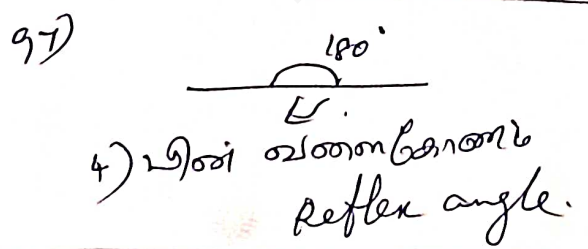 180°
4) பின் வளைகோணம்
Reflex angle.